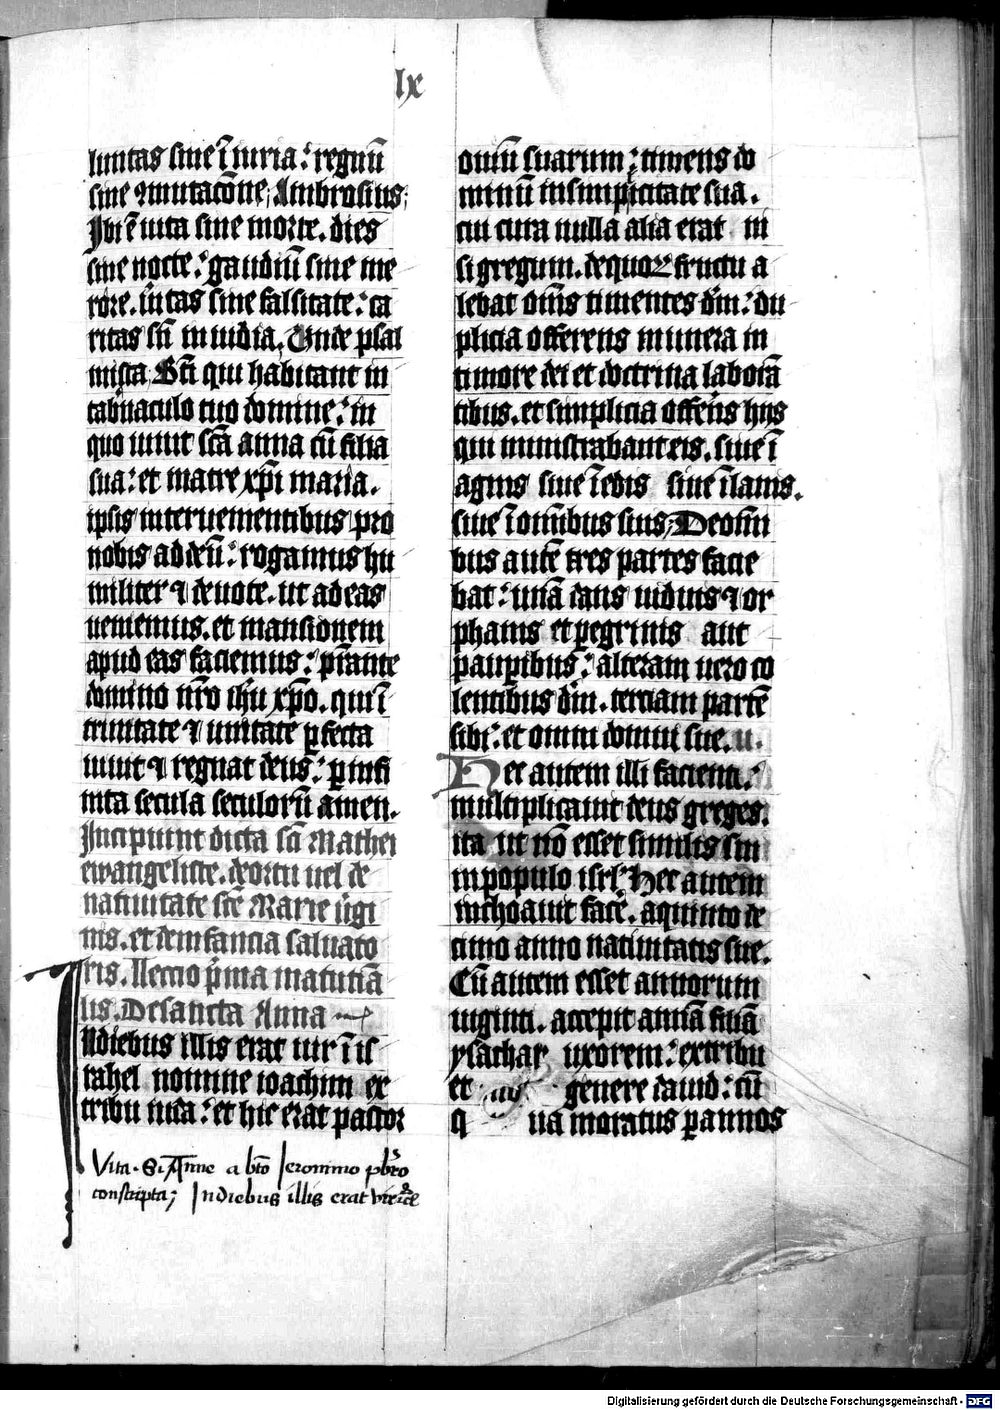 lx
luntas sine ī iuria: regnū
sine ꝯmutacōne, Ambrosius;
Ibi ē uita sine morte. dies
sine nocte: gaudiū sine me
rore. ūitas sine falsitate: ca
ritas sn̄ inuidia, Unde psal
mista, Bt̄i qui habitant in
tabn̄aculo tuo domine: in
quo uiuit sc̄a anna cū filia
sua: et matre xp̄i maria.
ipsis interuenientibus pro
nobis ad deū: rogamus hu
militer ⁊ deuote. ut ad eas
ueniemus. et mansionem
apud eas faciemus: p̄stante
domino nr̄o ihū xp̄o. qui ī
trinitate ⁊ unitate ꝑfecta
uiuit ⁊ regnat deus: ꝑ infi
nita secula seculorū amen.
Incipiunt dicta sc̄i Mathei
ewangeliste. de ortu uel de
natiuitate sc̄e Marie ūgi
nis. et de infancia saluato
ris. Leccio p̄ma matutīa
lis. De sancta Anna
In diebus illis erat uir ī is
rahel nomine ioachim ex
tribu iuda: et hic erat pastor
Vita. S. Anne a bt̄o Jeronimo pb̄ro
conscripta; In diebus illis erat vir
ouiū suarum: timens do
minū in simplicitate sua.
cui cura nulla alia erat ni
si gregum. de quoꝝ fructu a
lebat om̄s timentes dm̄: du
plicia offerens munera in
timore dei et doctrina laborā
tibus. et simplicia offer̄s hijs
qui ministrabant eis. siue ī
agnis siue ī edis siue ī lanis.
siue ī omībus suis; De om̄i
bus autē tres partes facie
bat: unā dans uiduis ⁊ or
phanis et pegrinis aut
pauꝑibus: alteram uero co
lentibus dm̄. terciam partē
sibi: et omni domui sue.
Hec autem illi facienti:
multiplicauit deus greges.
ita ut nō esset similis sui
in populo isrl̄ Hec autem
inchoauit facē. a quinto de
cimo anno natiuitatis sue.
Cū autem esset annorum
uiginti. accepit annā filiā
ysachar uxorem: ex tribu
et genere dauid: cū
q ua moratus ꝑ annos
Digitalisierung gefördert durch die Deutsche Forschungsgemeinschaft - DFG